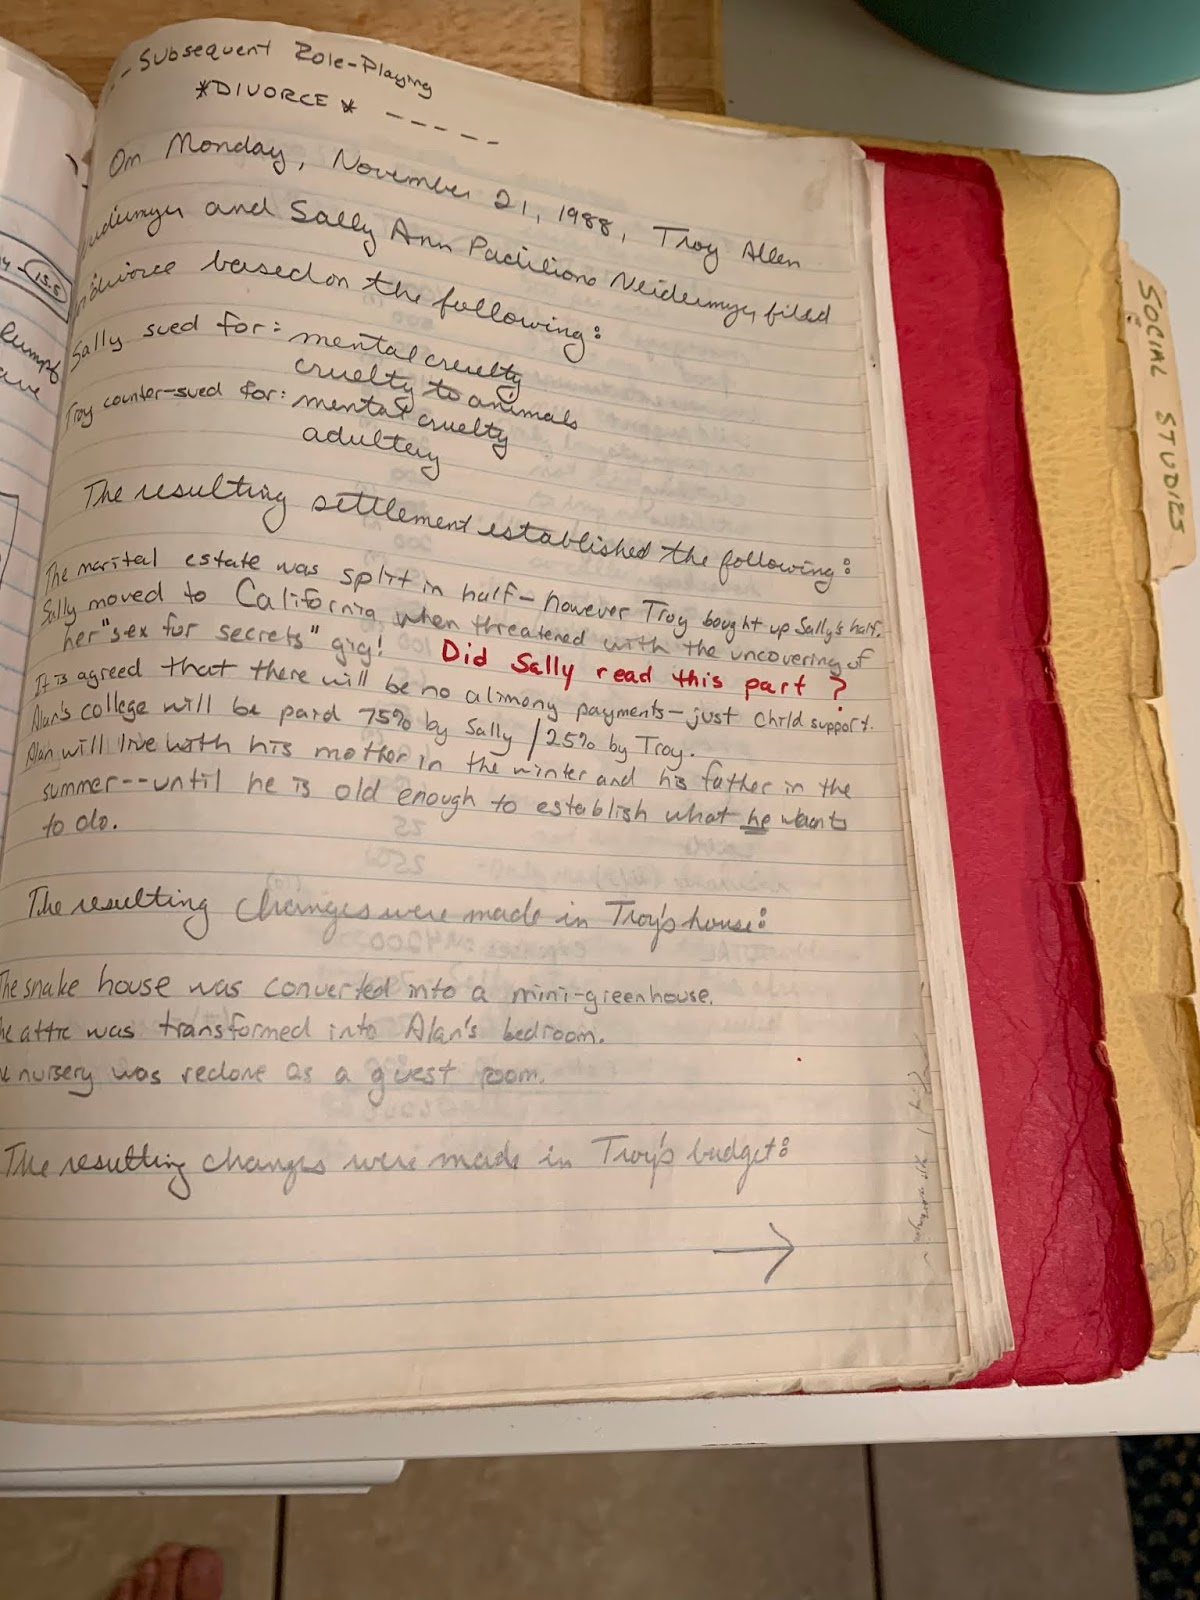 - Subsequent Role-Playing
*DIVORCE* -----
On Monday, November 21, 1988, Troy Allen
and Sally Ann Neidermyer filed
divorce based on the following:
Sally sued for: mental cruelty
cruelty to animals
Troy counter-sued for: mental cruelty
adultery
The resulting settlement established the following:
The marital estate was split in half - however Troy bought up Sally's half.
Sally moved to California when threatened with the uncovering of
her "sex for secrets" gig! Did Sally read this part ?
It is agreed that there will be no alimony payments - just child support.
Alan's college will be paid 75% by Sally / 25% by Troy.
Alan will live with his mother in the winter and his father in the
summer--until he is old enough to establish what he wants
to do.
The resulting changes were made in Troy's house:
The snake house was converted into a mini-greenhouse.
he attic was transformed into Alan's bedroom.
nursery was redone as a guest room.
The resulting changes were made in Troy's budget:
→
SOCIAL STUDIES
13.5